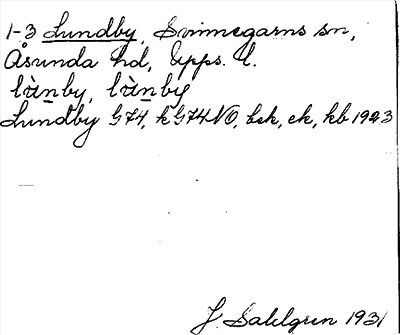 1-3 Lundby, Svinnegarns sn,
Åsunda hd, Upps. l.
lùnby, lùnby
Lundby G74, kG74NO, bek, ek, kb 1923
J. Sahlgren 1931